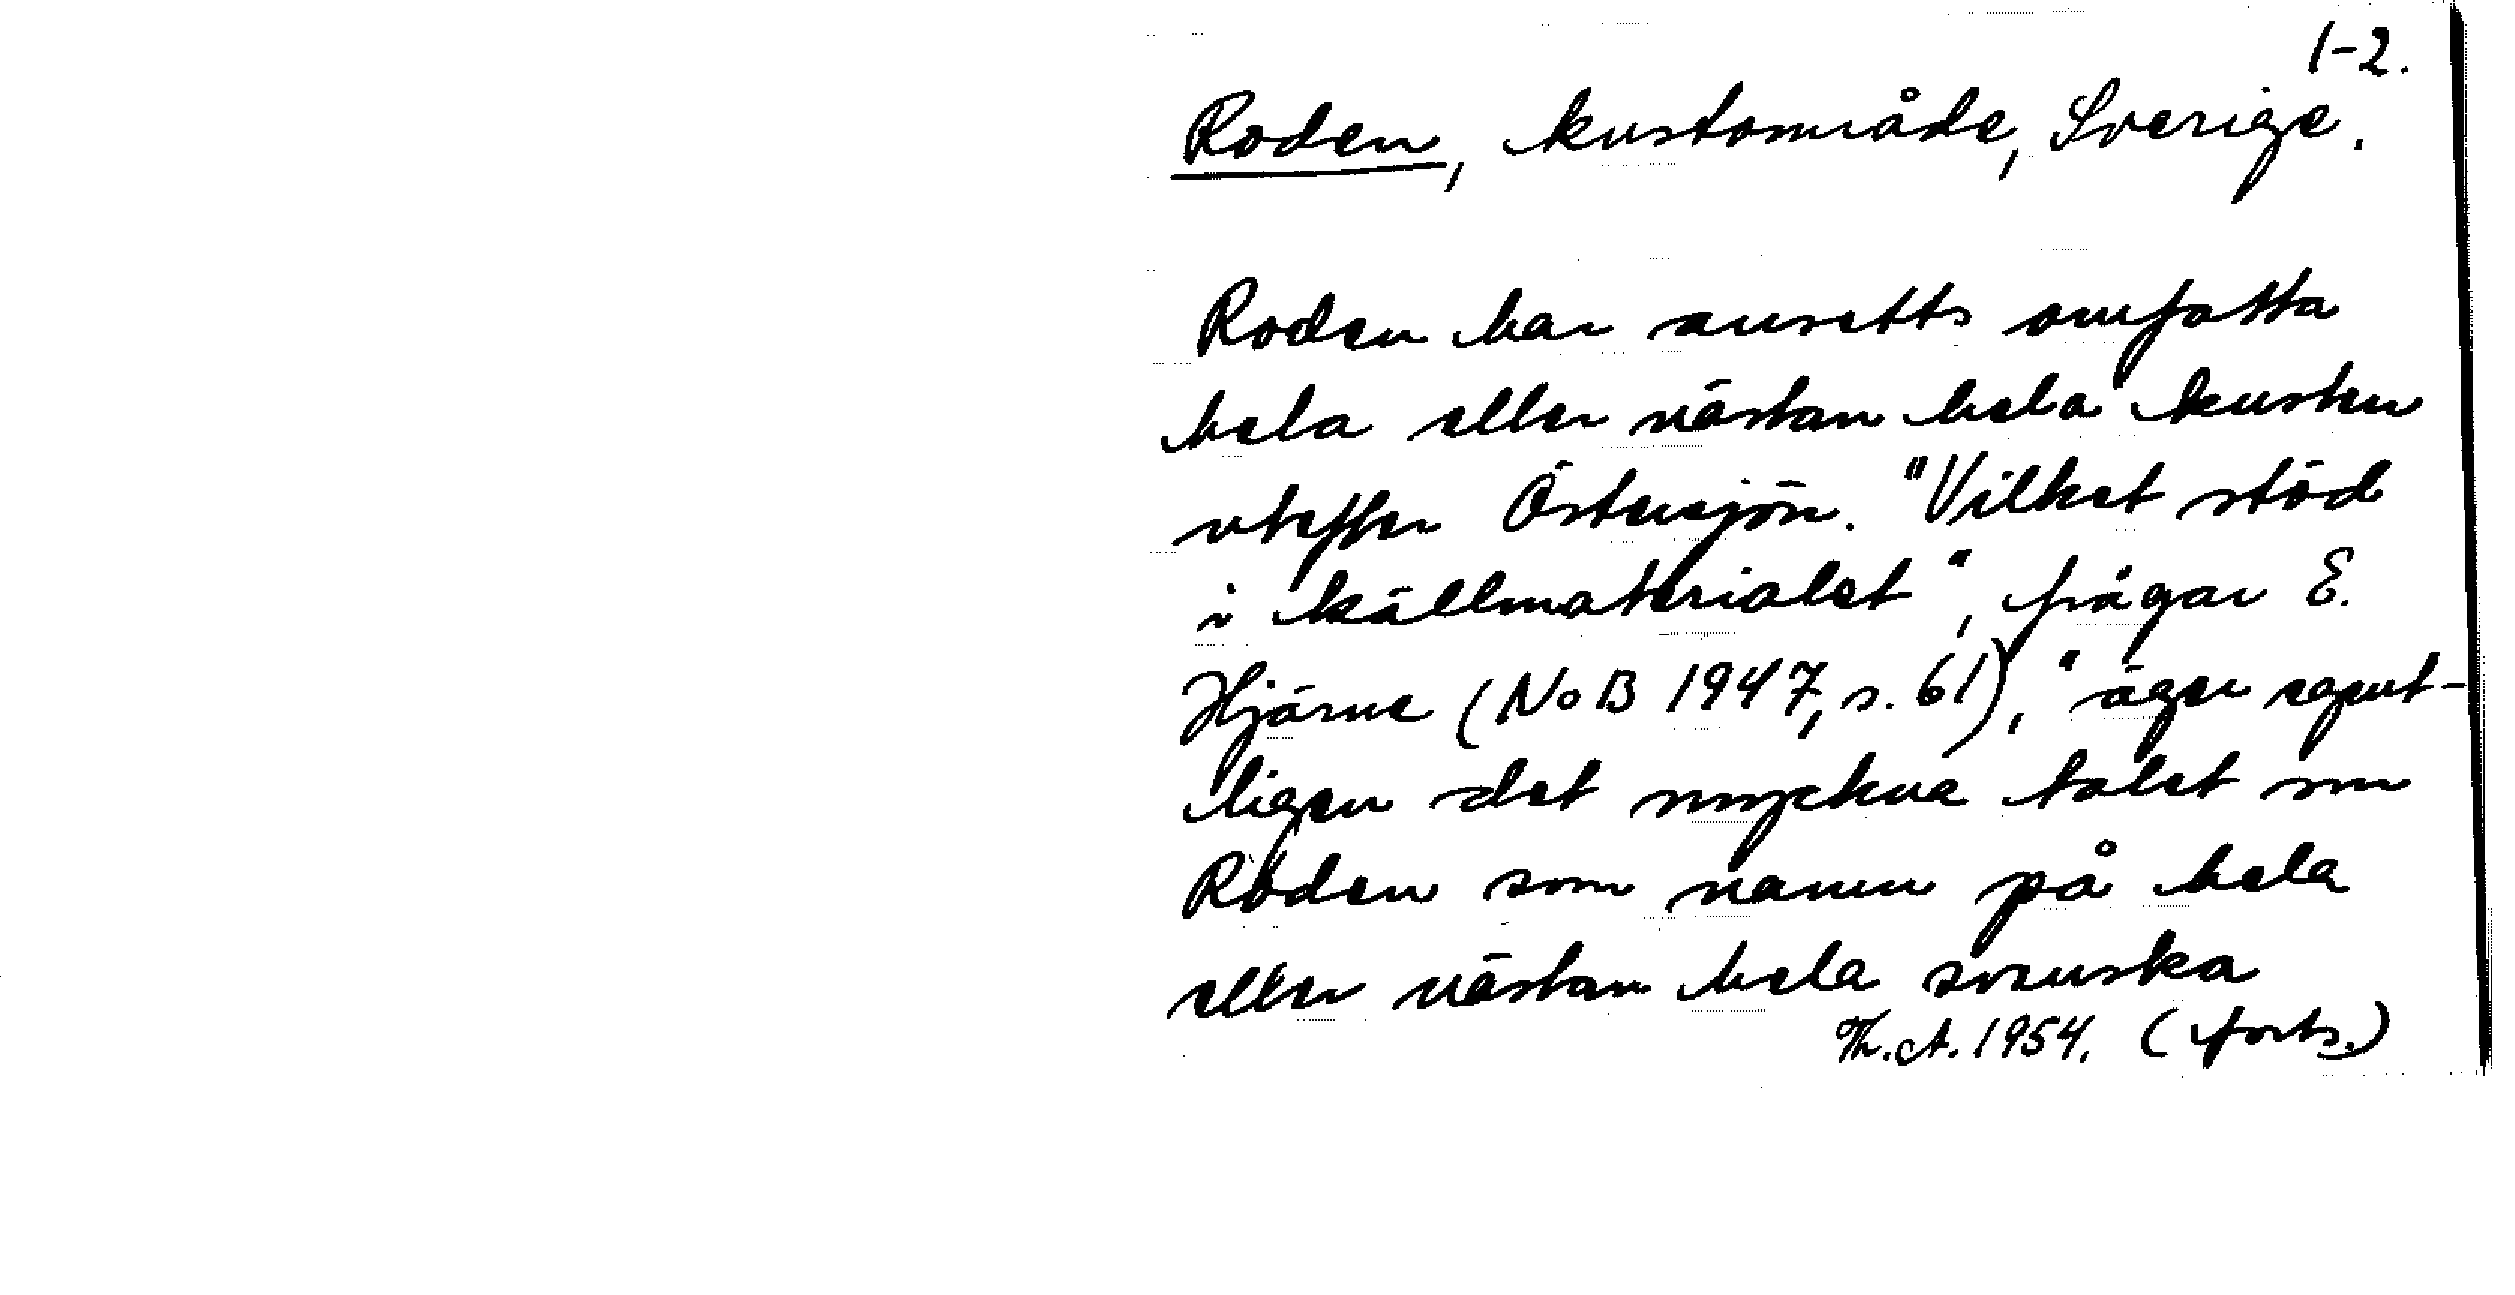 1-2.
Roden, kustområde, Sverige.
Roden har ansetts omfatta
hela eller nästan hela kusten
utefter Östersjön. "Vilket stöd
i källmaterialet", frågar E.
Hjärne (NoB 1947, s. 61), "äger egent-
ligen det myckna talet om
Roden som namn på hela
eller nästan hela svenska
Th. A. 1954. (forts.)